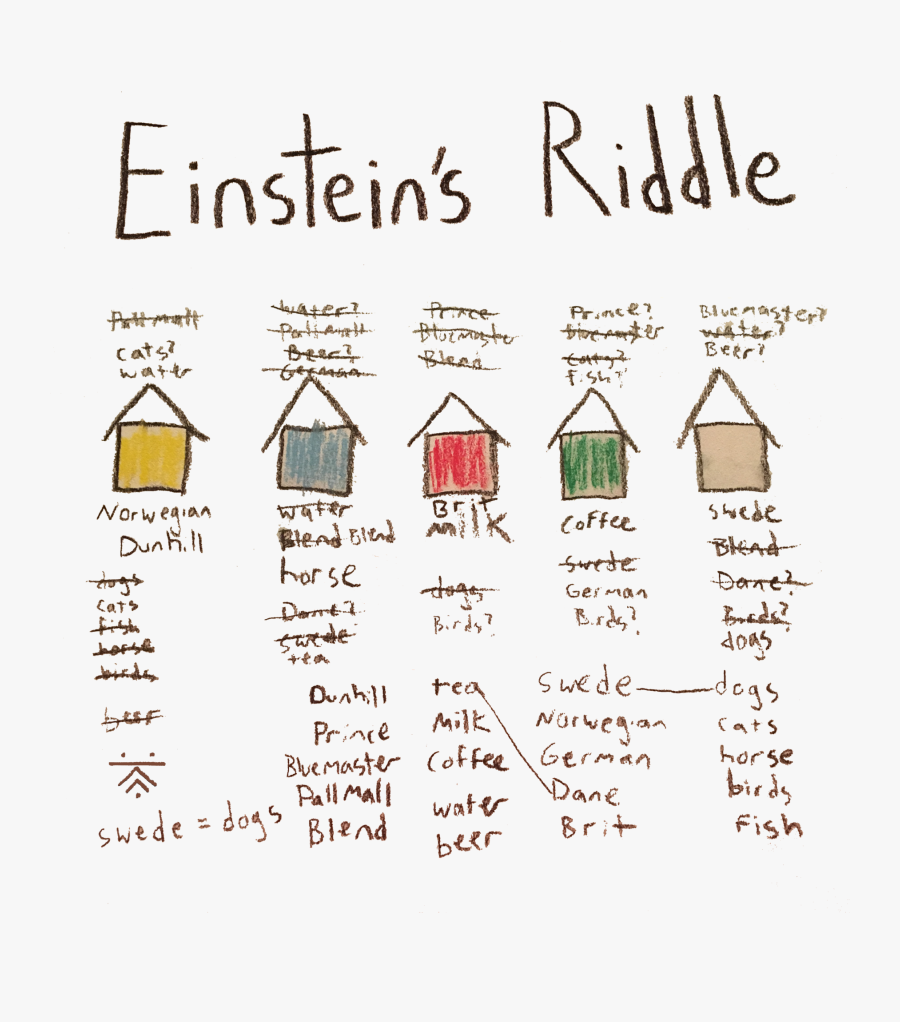 Einstein's Riddle
Pall Mall
cats?
water
water?
Pall Mall
Beer?
German
Prince
Bluemaster
Blend
Prince?
bluemaster
cats?
fish?
Bluemaster?
water?
Beer?
Norwegian
Dunhill
dogs
cats
fish
horse
birds
beer
water
Blend Blend
horse
Dane?
swede
tea
Brit
milk
dogs
Birds?
coffee
swede
German
Birds?
swede
Blend
Dane?
Birds?
dogs
swede = dogs
Dunhill
Prince
Bluemaster
Pall Mall
Blend
tea
Milk
coffee
water
beer
swede
Norwegian
German
Dane
Brit
dogs
cats
horse
birds
Fish